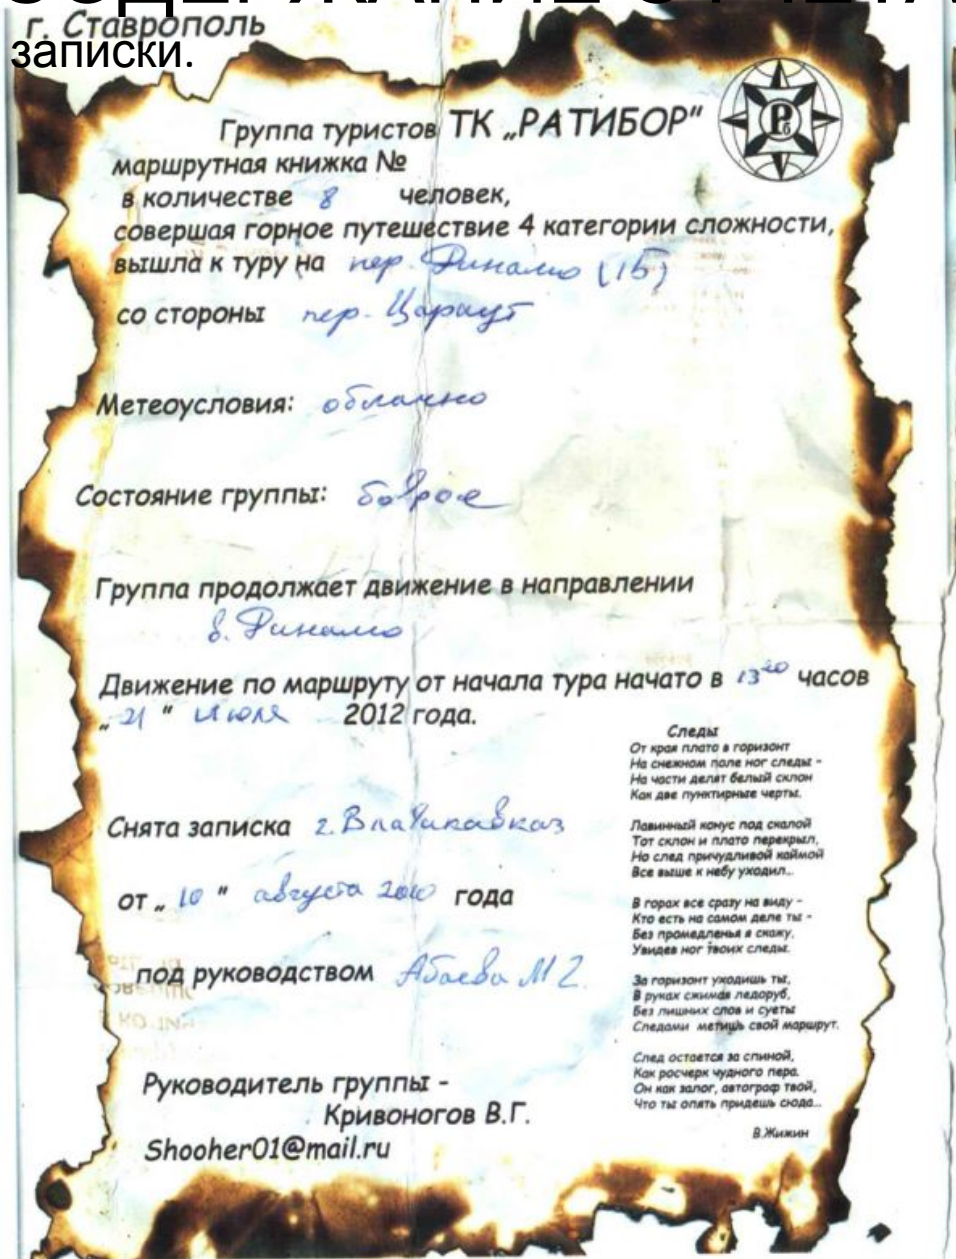 СОДЕРЖАНИЕ ОТЧЕТА.
г. Ставрополь
записки.
Группа туристов ТК „РАТИБОР"
Рб
маршрутная книжка №
в количестве 8 человек,
совершая горное путешествие 4 категории сложности,
вышла к туру на пер. Динамо (1Б)
со стороны пер. Цараут
Метеоусловия: облачно
Состояние группы: бодрое
Группа продолжает движение в направлении
в. Динамо
Движение по маршруту от начала тура начато в 13²⁰ часов
„ 21 " июля 2012 года.
Снята записка г. Владикавказ
от „ 10 " августа 2010 года
под руководством Абаева М Г.
Руководитель группы -
Кривоногов В.Г.
Shooher01@mail.ru
Следы
От края плато в горизонт
На снежном поле ног следы -
На части делят белый склон
Как две пунктирные черты.
Лавинный конус под скалой
Тот склон и плато перекрыл,
Но след причудливой каймой
Все выше к небу уходил...
В горах все сразу на виду -
Кто есть на самом деле ты -
Без промедленья я скажу,
Увидев ног твоих следы.
За горизонт уходишь ты,
В руках сжимая ледоруб,
Без лишних слов и суеты
Следами метишь свой маршрут.
След остается за спиной,
Как росчерк чудного пера.
Он как залог, автограф твой,
Что ты опять придешь сюда...
В.Жижин